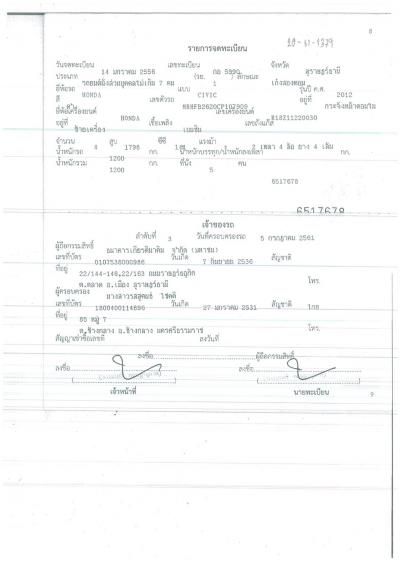 8
20-11-1379
รายการจดทะเบียน
วันจดทะเบียน 14 มกราคม 2556 เลขทะเบียน กล 5990 จังหวัด สุราษฎร์ธานี
ประเภท รถยนต์นั่งส่วนบุคคลไม่เกิน 7 คน (รย. 1 ) ลักษณะ เก๋งสองตอน
ยี่ห้อรถ HONDA แบบ CIVIC รุ่นปี ค.ศ. 2012
สี เลขตัวรถ MRHFB2620CP107909 อยู่ที่
ยี่ห้อเครื่องยนต์ HONDA เลขเครื่องยนต์ R18Z11220030
อยู่ที่ ซ้ายเครื่อง เชื้อเพลิง เบนซิน เลขถังแก๊ส
จำนวน 4 สูบ 1798 ซีซี 141 แรงม้า 2 เพลา 4 ล้อ ยาง 4 เส้น
น้ำหนักรถ 1200 กก. น้ำหนักบรรทุก/น้ำหนักลงเพลา กก.
น้ำหนักรวม 1200 กก. ที่นั่ง 5 คน
6517678
6517678
เจ้าของรถ
ลำดับที่ 3 วันที่ครอบครองรถ 5 กรกฎาคม 2561
ผู้ถือกรรมสิทธิ์ ธนาคารเกียรตินาคิน จำกัด (มหาชน)
เลขที่บัตร 0107536000986 วันเกิด 7 กันยายน 2536 สัญชาติ
ที่อยู่ 22/144-146,22/163
ต.ตลาด อ.เมือง สุราษฎร์ธานี โทร.
ผู้ครอบครอง
เลขที่บัตร 1800400114696 วันเกิด 27 มกราคม 2531 สัญชาติ ไทย
ที่อยู่ 85 หมู่ 7
ต.ช้างกลาง อ.ช้างกลาง นครศรีธรรมราช โทร.
สัญญาเช่าซื้อเลขที่ ลงวันที่
ลงชื่อ ผู้ถือกรรมสิทธิ์
ลงชื่อ ลงชื่อ
เจ้าหน้าที่ นายทะเบียน
9